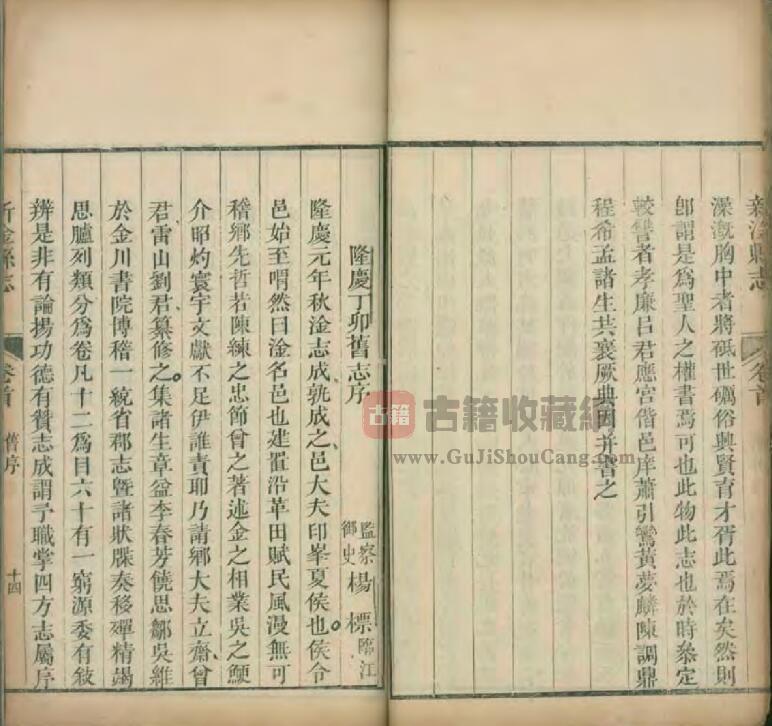 新淦縣志
卷首
澡漑胸中者將砥世礪俗興賢育才胥此焉在矣然則
卽謂是為聖人之權書焉可也此物此志也於時叅定
較讐者孝廉呂君應宮偕邑庠蕭引鸞黃夢麟陳調鼎
程希孟諸生共襄厥典因幷書之
隆慶丁卯舊志序
監察御史楊標臨江
隆慶元年秋淦志成孰成之邑大夫印峯夏侯也侯令
邑始至喟然曰淦名邑也建置沿革田賦民風漫無可
稽鄉先哲若陳練之忠節曾之著述金之相業吳之鯁
介昭灼寰宇文獻不足伊誰責耶乃請鄉大夫立齋曾
君雷山劉君纂修之集諸生章益李春芳饒思鄒吳維
於金川書院博稽一統省郡志曁諸狀牒奏移殫精竭
思臚列類分為卷凡十二為目六十有一窮源委有敍
辨是非有論揚功德有贊志成謂予職掌四方志屬序
新淦縣志
卷首
舊序
十四
古籍
古籍收藏網
www.GuJiShouCang.com